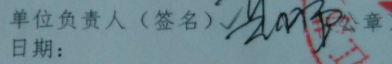 单位负责人（签名）
公章
日期：